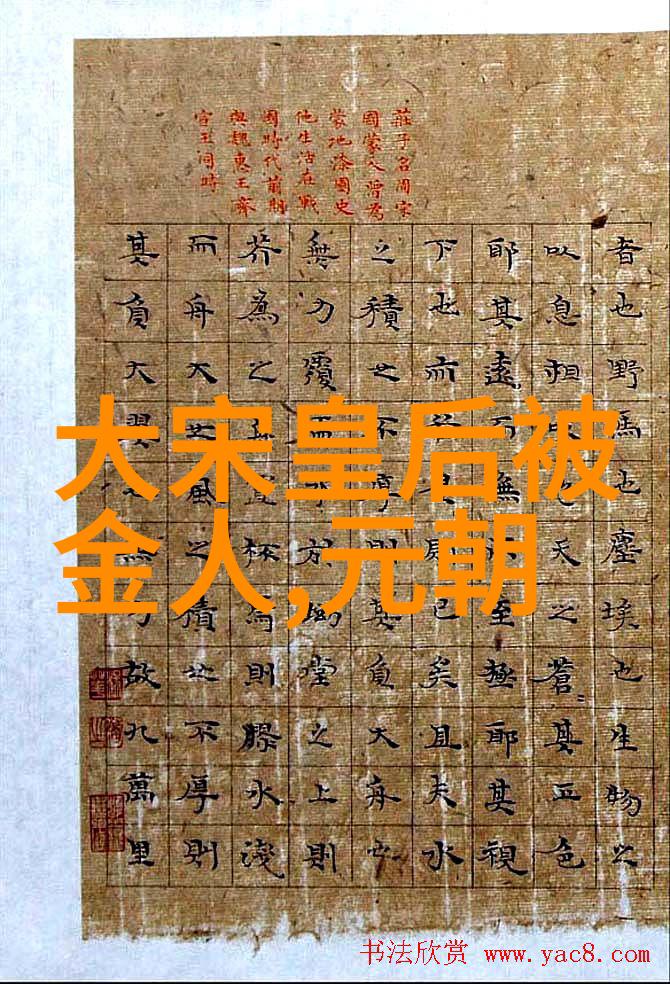 莊子名周宋
國蒙人曾為
蒙地漆園史
他生活在戰
國時代前期
與魏惠王齊
宣王同時
者也野馬也塵埃也生物之
以息相吹也天之蒼〻其正色
耶其遠而無所至極耶其視
下也而若是則已矣且夫水
之積也不厚則其負大舟也
無力覆杯水於坳堂之上則
芥為之舟置杯焉則膠水淺
而舟大也風之積也不厚則
其負大翼也無力故九萬里
大宋皇后被
金人,元朝
书法欣赏 www.yac8.com